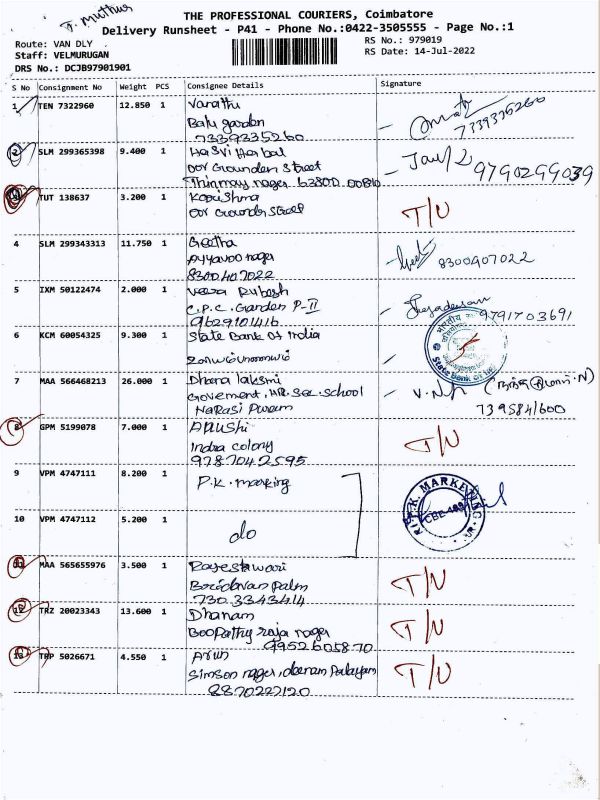 F. muthur
THE PROFESSIONAL COURIERS, Coimbatore
Delivery Runsheet - P41 - Phone No.:0422-3505555 - Page No.:1
Route: VAN DLY
RS No.: 979019
Staff: VELMURUGAN
RS Date: 14-Jul-2022
DRS No.: DCJB97901901
S No Consignment No Weight PCS Consignee Details Signature
1 TEN 7322960 12.850 1 Varathu
Balu garden
7339335260
7339335260
2 SLM 299365398 9.400 1 Hasvi Herbal
oor Grounder Street
9790299039
3 TUT 138637 3.200 1 Koushma
oor Grounder Street
T/N
4 SLM 299343313 11.750 1 Geetha
Ayyavoo nager
8300407022
8300407022
5 IXM 50122474 2.000 1 Veera Rubash
C.P.C. Garden P-II
9629101416
9791703691
6 KCM 60054325 9.300 1 State Bank Of India
State Bank Of
7 MAA 566468213 26.000 1 Dhana laksmi
Govement. HR. Sec. School
NaRasi Puram
7395841600
8 GPM 5199078 7.000 1 Anushi
Indra colony
9787042595
T/N
9 VPM 4747111 8.200 1 P.K. marking
P.K. MARKETING
10 VPM 4747112 5.200 1 do
11 MAA 565655976 3.500 1 Rajeshwari
Brindavan Palm
730 3343414
T/N
12 TRZ 20023343 13.600 1 Dhanam
Boopathy raja nager
9952605870
T/N
13 TRP 5026671 4.550 1 Arun
Simson nager, deenam Palayam
8870227120
T/N